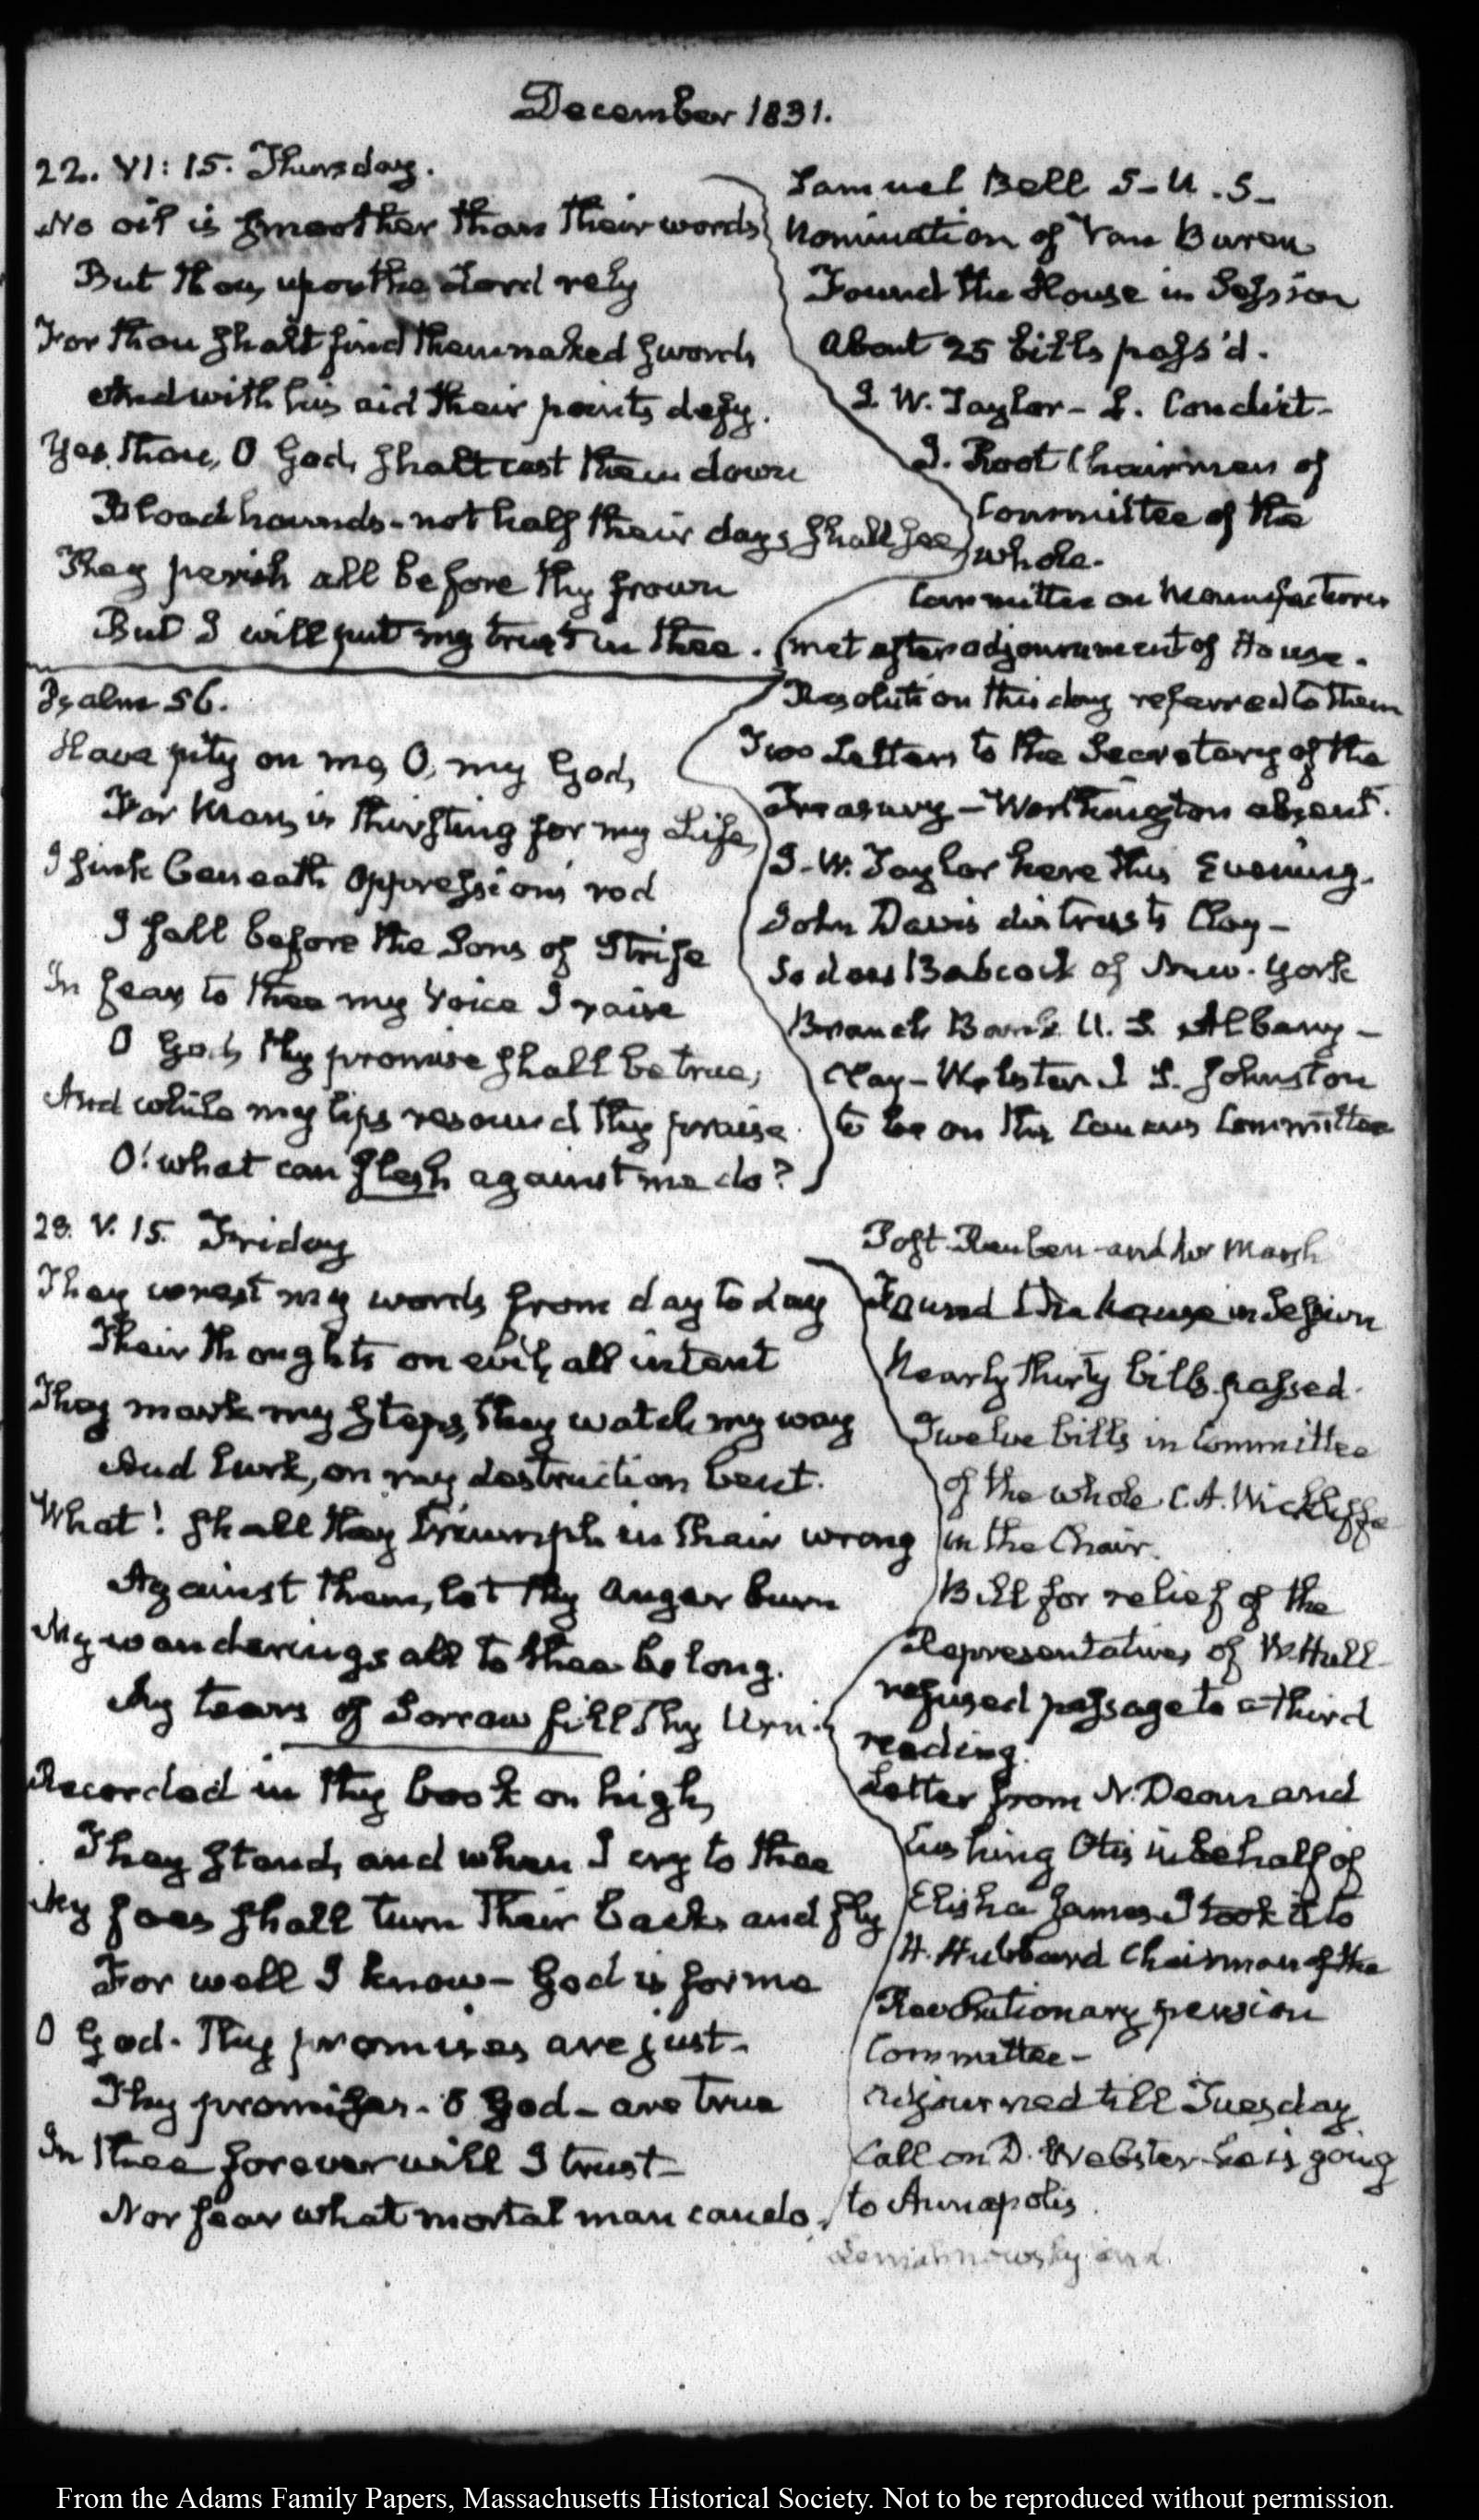 December 1831.
22. VI: 15. Thursday.
No oil is smoother than their words
But thou, upon the Lord rely
For thou shalt find them naked swords
And with his aid their points defy.
Yes, thou, O God, shalt cast them down
Bloodhounds - not half their days shall see,
They perish all before thy frown
But I will put my trust in thee.
Samuel Bell S. U. S.
Nomination of Van Buren
Found the House in Session
About 25 bills pass'd.
J. W. Taylor - L. Condict -
J. Root Chairman of
Committee of the
whole.
Committee on Manufactures
met after adjournment of House.
Resolution this day referred to them
Two Letters to the Secretary of the
Treasury - Worthington absent.
J. W. Taylor here this Evening.
John Davis distrusts Clay -
So does Babcock of New-York
Branch Bank U. S. Albany -
Clay - Webster J S. Johnston
to be on the Caucus Committee
Psalm 56.
Have pity on me, O, my God,
For Man, is thirsting for my Life,
I sink beneath Oppression's rod
I fall before the Sons of Strife
In fear, to thee my Voice I raise
O God, thy promise shall be true;
And while my lips resound thy praise
O! what can flesh against me do?
23. V. 15. Friday
They wrest my words from day to day
Their thoughts on evil, all intent
They mark my steps, they watch my way
And lurk, on my destruction bent.
What! shall they triumph in their wrong
Against them, let thy anger burn
My wanderings all to thee belong.
My tears of Sorrow fill Thy Urn.
Recorded in thy book on high,
They stand, and when I cry to thee
My foes shall turn their backs and fly
For well I know - God is for me
O God. Thy promises are just -
Thy promises - O God - are true
In thee forever will I trust -
Nor fear what mortal man can do.
Post Reuben and Mr Marsh
Found the house in Session
Nearly thirty bills passed.
Twelve bills in Committee
of the whole C. A. Wickliffe
in the Chair.
Bill for relief of the
Representatives of W. Hull
refused passage to a third
reading.
Letter from N. Dean and
Cushing Otis in behalf of
Elisha James. I took it to
H. Hubbard Chairman of the
Revolutionary pension
Committee -
Adjourned till Tuesday
Call on D. Webster he is going
to Annapolis.
From the Adams Family Papers, Massachusetts Historical Society. Not to be reproduced without permission.